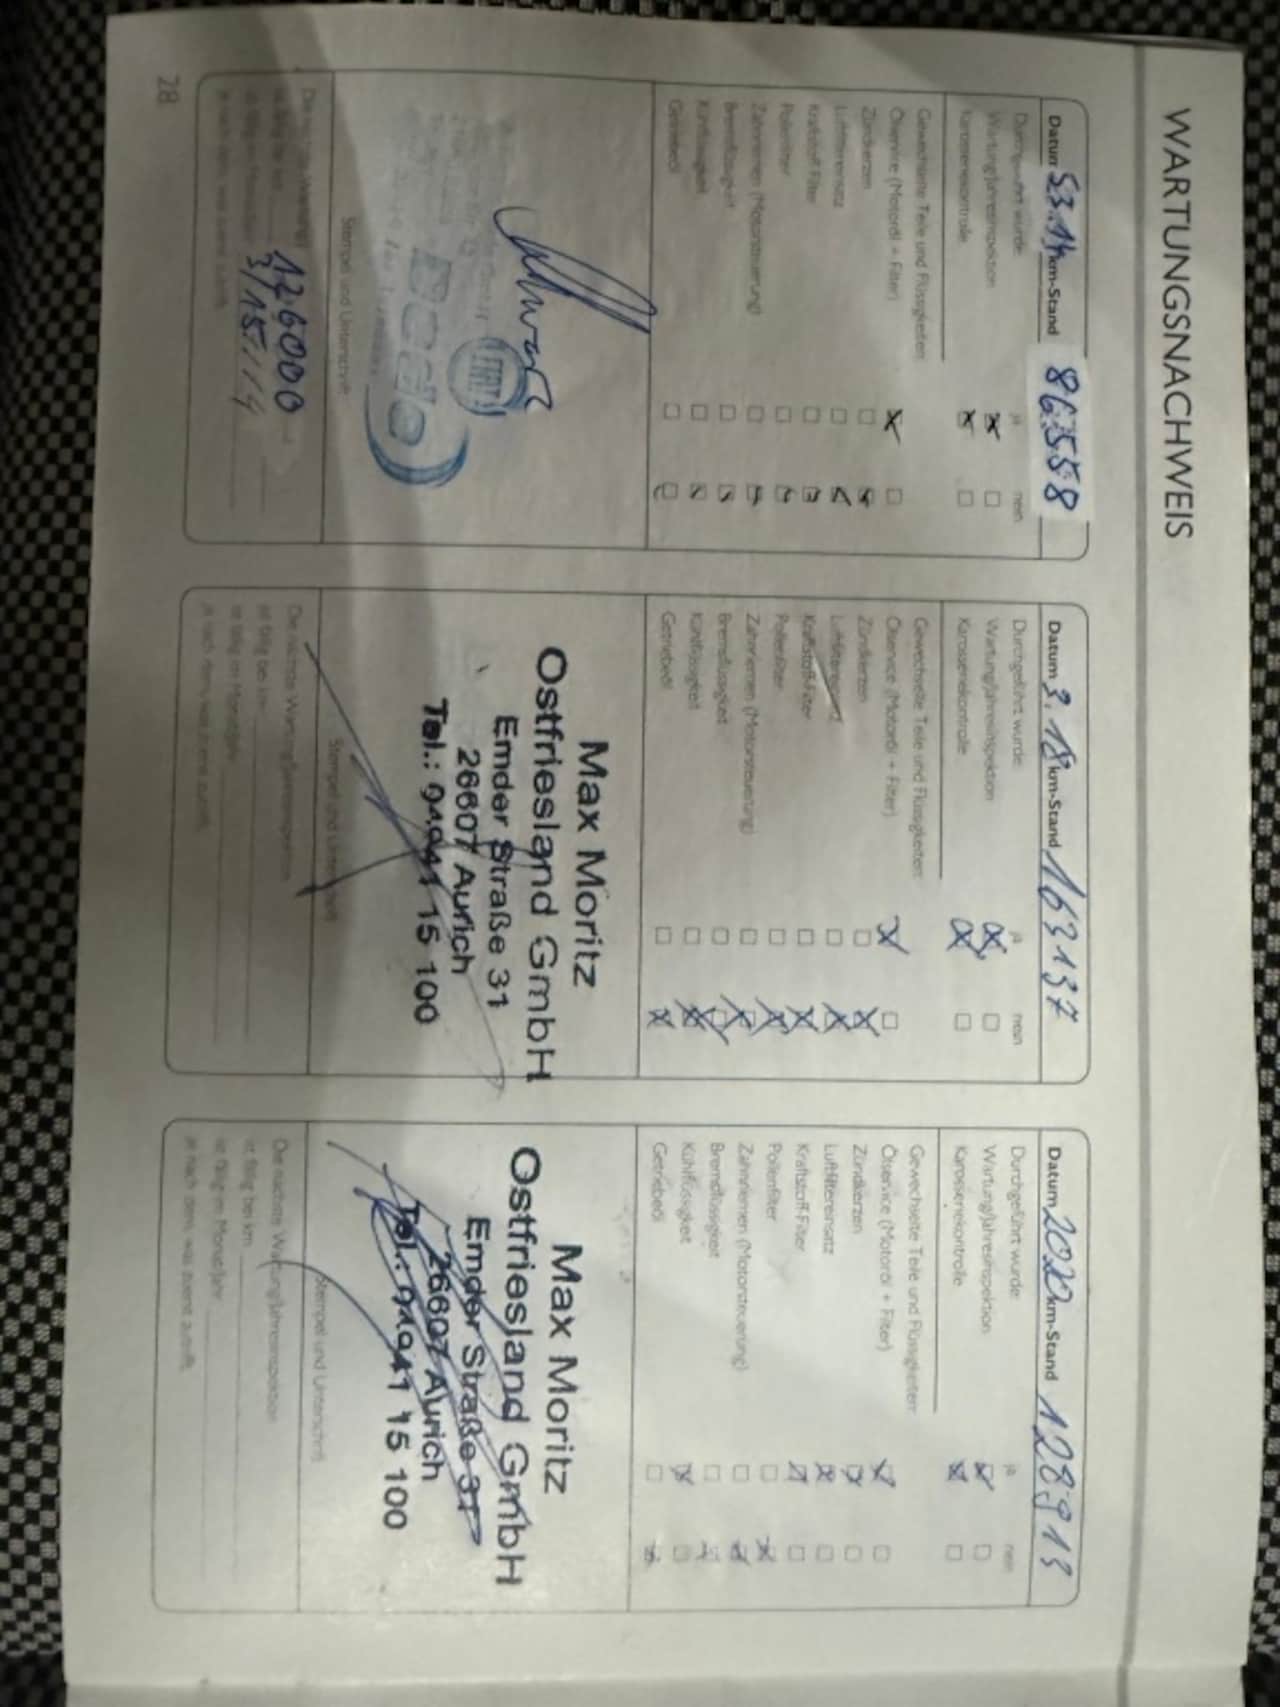 WARTUNGSNACHWEIS
Datum 5.3.14 km-Stand 86558
Durchgeführt wurde: ja nein
Wartung/Jahresinspektion
Karosseriekontrolle
Gewechselte Teile und Flüssigkeiten:
Ölservice (Motoröl + Filter)
Zündkerzen
Luftfiltereinsatz
Kraftstoff-Filter
Pollenfilter
Zahnriemen (Motorsteuerung)
Bremsflüssigkeit
Kühlflüssigkeit
Getriebeöl
FIAT
Stempel und Unterschrift
Die nächste Wartung
ist fällig bei km 126000
ist fällig im Monat/Jahr 3/15
je nach dem, was zuerst zutrifft.
Datum 3.18 km-Stand 163137
Durchgeführt wurde: ja nein
Wartung/Jahresinspektion
Karosseriekontrolle
Gewechselte Teile und Flüssigkeiten:
Ölservice (Motoröl + Filter)
Zündkerzen
Luftfiltereinsatz
Kraftstoff-Filter
Pollenfilter
Zahnriemen (Motorsteuerung)
Bremsflüssigkeit
Kühlflüssigkeit
Getriebeöl
Max Moritz
Ostfriesland GmbH
Emder Straße 31
26607 Aurich
Tel.: 04941 15 100
Stempel und Unterschrift
Die nächste Wartung/Jahresinspektion
ist fällig bei km
ist fällig im Monat/Jahr
je nach dem, was zuerst zutrifft.
Datum 2020 km-Stand 128913
Durchgeführt wurde: ja nein
Wartung/Jahresinspektion
Karosseriekontrolle
Gewechselte Teile und Flüssigkeiten:
Ölservice (Motoröl + Filter)
Zündkerzen
Luftfiltereinsatz
Kraftstoff-Filter
Pollenfilter
Zahnriemen (Motorsteuerung)
Bremsflüssigkeit
Kühlflüssigkeit
Getriebeöl
Max Moritz
Ostfriesland GmbH
Emder Straße 31
26607 Aurich
Tel.: 04941 15 100
Stempel und Unterschrift
Die nächste Wartung/Jahresinspektion
ist fällig bei km
ist fällig im Monat/Jahr
je nach dem, was zuerst zutrifft.
28